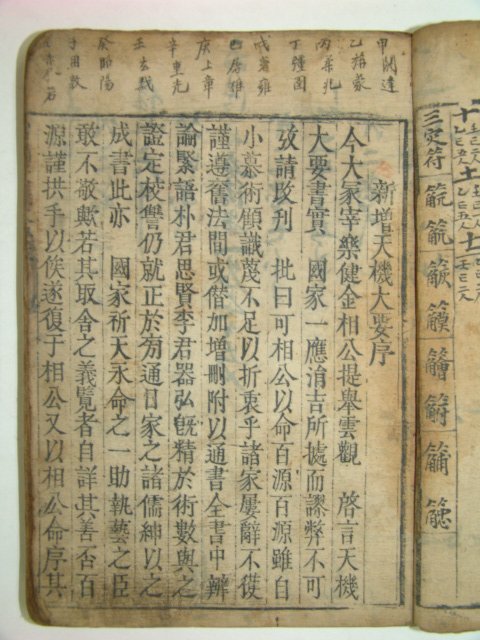 甲閼逢
乙旃蒙
丙柔兆
戊著雍
己屠維
庚上章
辛重光
癸昭陽
子困敦
新增天機大要序
今大冢宰樂健金相公提舉雲觀 啓言天機
大要書實 國家一應涓吉所據而謬弊不可
攷請改刊 批曰可相公以命百源百源雖自
小慕術顧識蔑不足以折衷乎諸家屢辭不獲
謹遵舊法間或僭加增刪附以通書全書中辨
論緊語朴君思賢李君器弘旣精於術數與之
證定校讐仍就正於旁通日家之諸儒紳以之
成書此亦 國家祈天永命之一助執藝之臣
敢不敬歟若其取舍之義覽者自詳其善否百
源謹拱手以俟遂復于相公又以相公命序其
三灾符